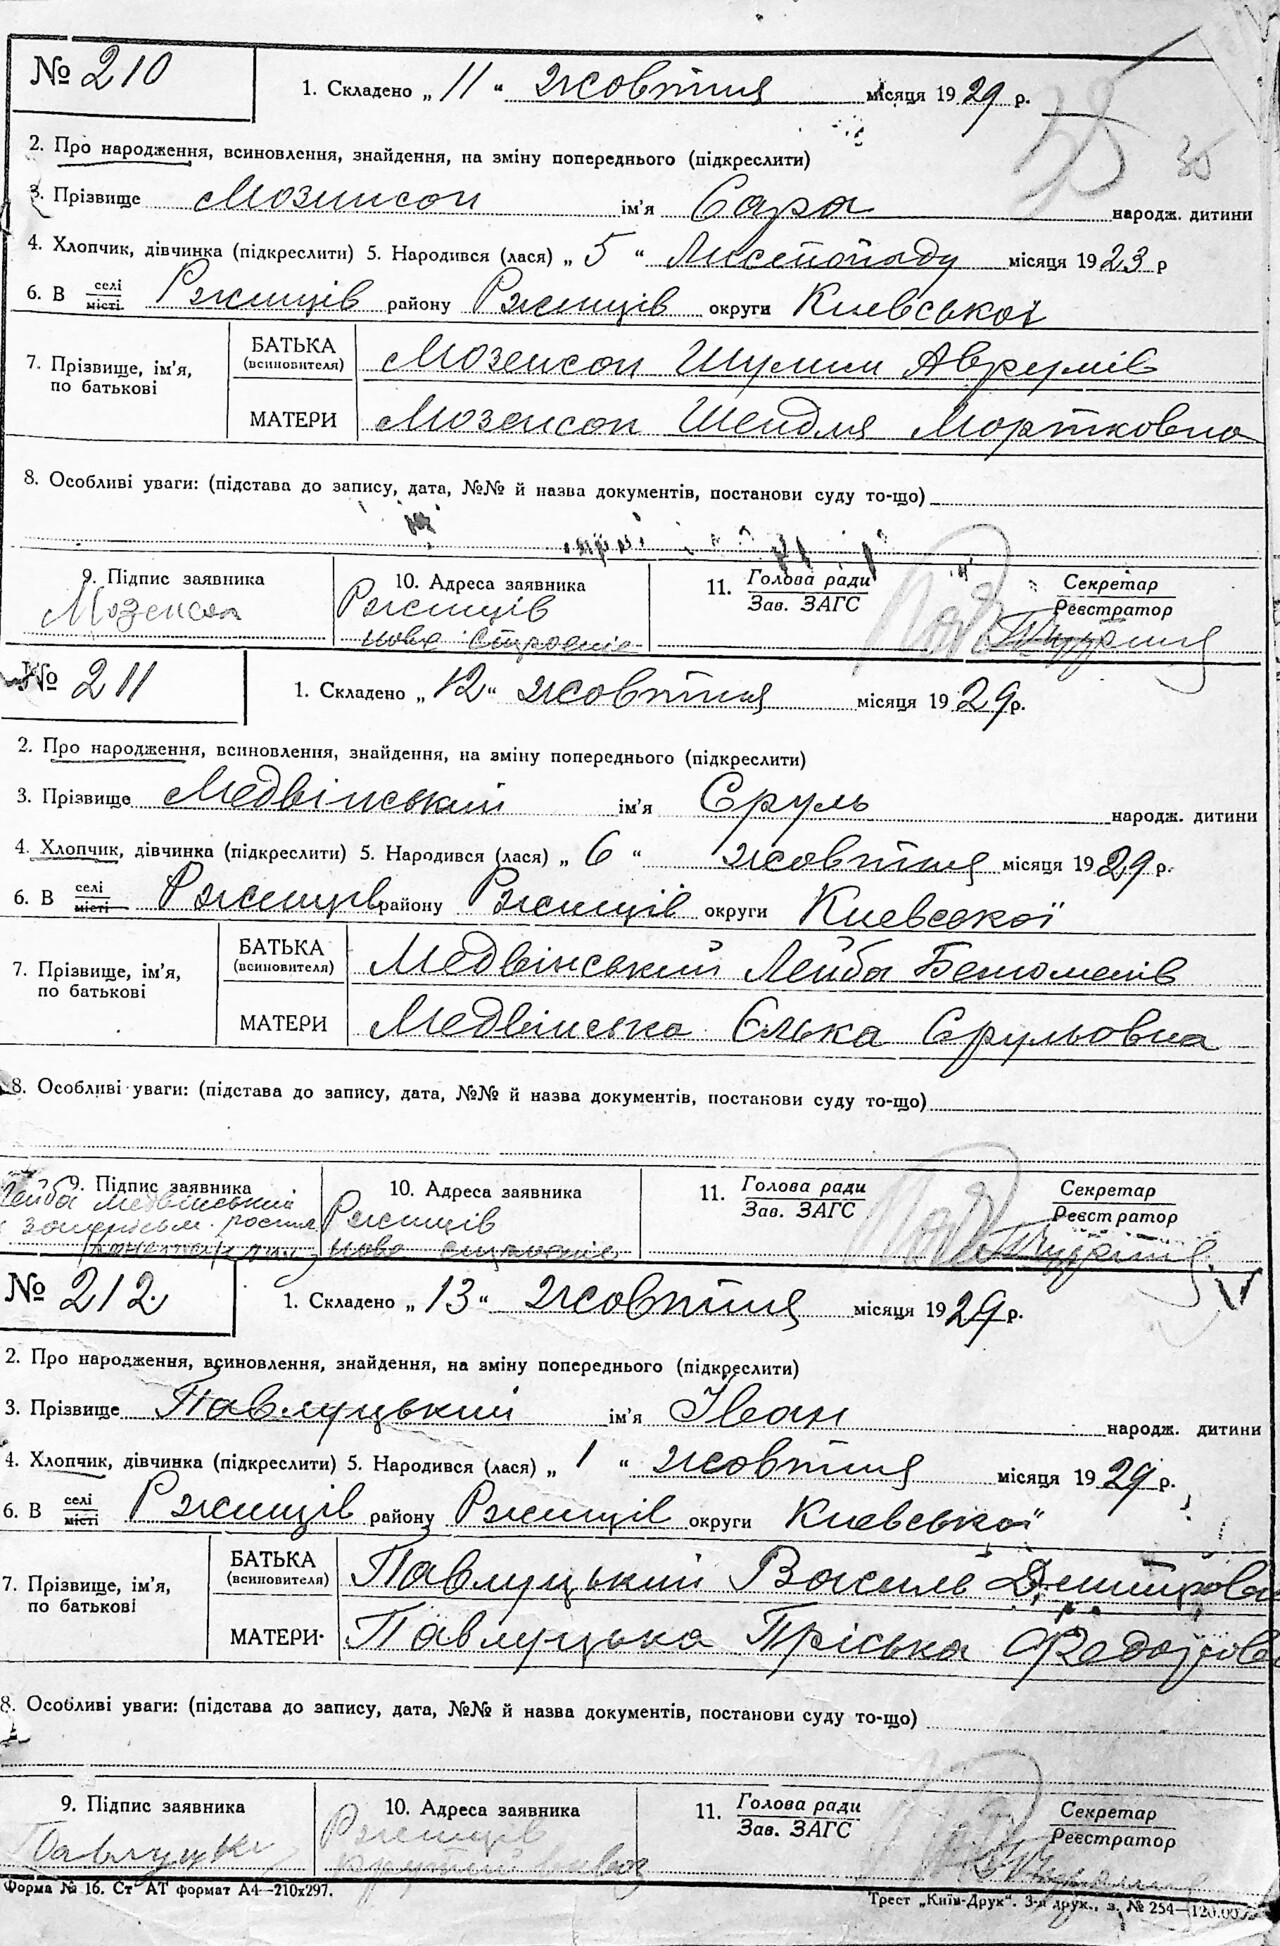 № 210
1. Складено „ 11 “ жовтня місяця 1929 р.
35
2. Про народження, всиновлення, знайдення, на зміну попереднього (підкреслити)
3. Прізвище Мозенсон ім'я Сара народж. дитини
4. Хлопчик, дівчинка (підкреслити) 5. Народився (лася) „ 5 “ Листопаду місяця 1923 р
6. В селі місті Ржищів району Ржищів округи Киевської
7. Прізвище, ім'я, по батькові
БАТЬКА (всиновителя) Мозенсон Шулим Аврумів
МАТЕРИ Мозенсон Шендля Мортковна
8. Особливі уваги: (підстава до запису, дата, №№ й назва документів, постанови суду то-що)
9. Підпис заявника 10. Адреса заявника 11. Голова ради Зав. ЗАГС Секретар Реєстратор
Мозенсон Ржищів
нове строеніе
№ 211
1. Складено „ 12 “ жовтня місяця 1929 р.
2. Про народження, всиновлення, знайдення, на зміну попереднього (підкреслити)
3. Прізвище Медвінський ім'я Сруль народж. дитини
4. Хлопчик, дівчинка (підкреслити) 5. Народився (лася) „ 6 “ жовтня місяця 1929 р.
6. В селі місті Ржищів району Ржищів округи Киевської
7. Прізвище, ім'я, по батькові
БАТЬКА (всиновителя) Медвінський Лейба
МАТЕРИ Медвінська Єлька Срульовна
8. Особливі уваги: (підстава до запису, дата, №№ й назва документів, постанови суду то-що)
9. Підпис заявника 10. Адреса заявника 11. Голова ради Зав. ЗАГС Секретар Реєстратор
Лейба Медвінський Ржищів
нове строеніе
№ 212
1. Складено „ 13 “ жовтня місяця 1929 р.
2. Про народження, всиновлення, знайдення, на зміну попереднього (підкреслити)
3. Прізвище Павлуцький ім'я Іван народж. дитини
4. Хлопчик, дівчинка (підкреслити) 5. Народився (лася) „ 1 “ жовтня місяця 1929 р.
6. В селі місті Ржищів району Ржищів округи Киевської
7. Прізвище, ім'я, по батькові
БАТЬКА (всиновителя) Павлуцький Василь
МАТЕРИ Павлуцька Пріська
8. Особливі уваги: (підстава до запису, дата, №№ й назва документів, постанови суду то-що)
9. Підпис заявника 10. Адреса заявника 11. Голова ради Зав. ЗАГС Секретар Реєстратор
Ржищів
Форма № 16. Ст АТ формат А4—210х297.
Трест „Київ-Друк“. 3-я друк., з. № 254—120.00